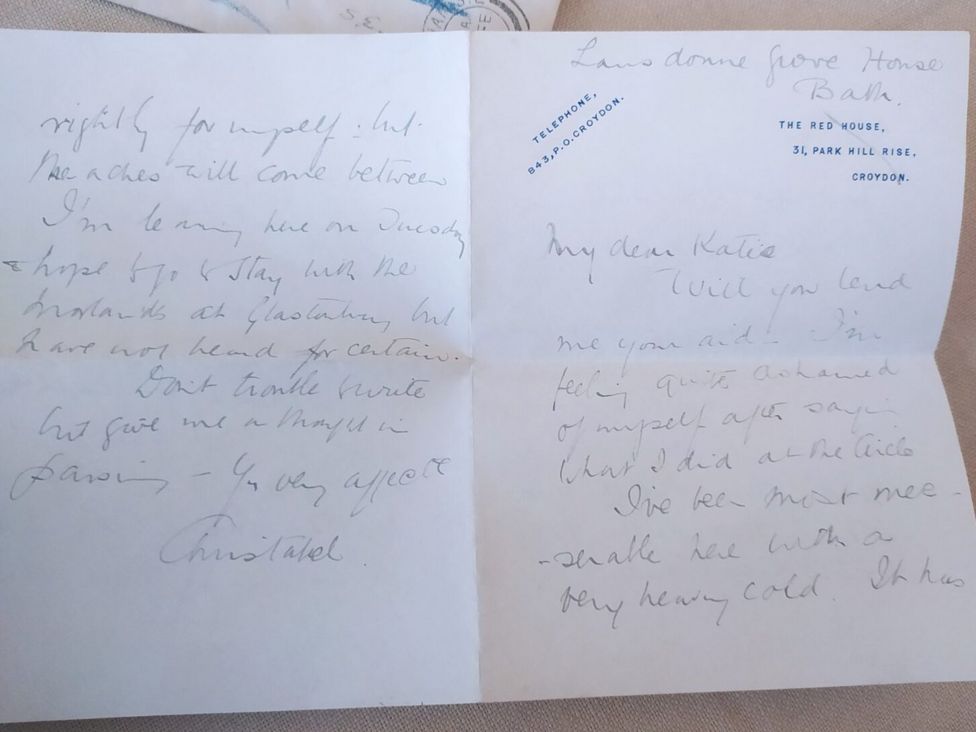 S.E.
Lansdowne Grove House
Bath.
TELEPHONE,
843, P.O. CROYDON.
THE RED HOUSE,
31, PARK HILL RISE,
CROYDON.
My dear Katie
Will you lend
me your aid – I'm
feeling quite ashamed
of myself after saying
what I did at the Circle
I've been most mee-
-serable here with a
very heavy cold. It has
rightly for myself: but
the aches will come between
I'm leaving here on Tuesday
& hope to go to stay with the
at Glastonbury but
have not heard for certain.
Don't trouble to write
but give me a thought in
passing – Yr very affecte
Christabel.